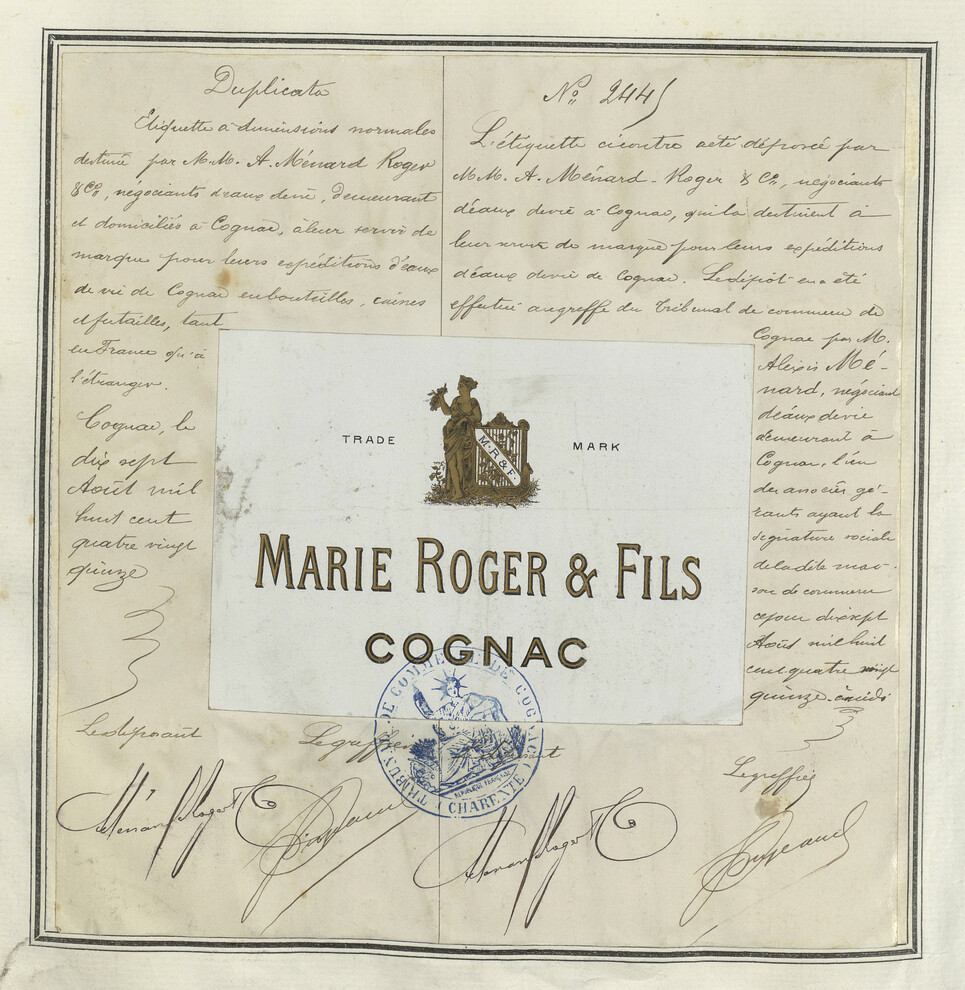 Duplicata
Etiquette à dimensions normales
destinée par M.M. A. Ménard Roger
& Co, négociants d'eaux de vie, demeurant
et domiciliés à Cognac, à leur servir de
marque pour leurs expéditions d'eaux
de vie de Cognac en bouteilles, caisses
et futailles, tant
en France qu'à
l'étranger.
Cognac, le
dix sept
Août mil
huit cent
quatre vingt
quinze
Le déposant
Le greffier
Ménard Roger & Co
No 2445
L'étiquette ci contre a été déposée par
MM. A. Ménard-Roger & Co, négociants
d'eaux de vie à Cognac, qui la destinent à
leur servir de marque pour leurs expéditions
d'eaux de vie de Cognac. Le dépôt en a été
effectué au greffe du Tribunal de commerce de
Cognac par M.
Alexis Mé-
nard, négociant
d'eaux de vie
demeurant à
Cognac, l'un
des associés gé-
rants ayant la
signature sociale
de la dite mai-
son de commerce
ce jour dix sept
Août mil huit
cent quatre vingt
quinze à midi
Le greffier
Ménard Roger & Co
TRADE MARK
M.R & F.
MARIE ROGER & FILS
COGNAC
TRIBUNAL DE COMMERCE DE COGNAC
(CHARENTE)
RÉPUBLIQUE FRANÇAISE